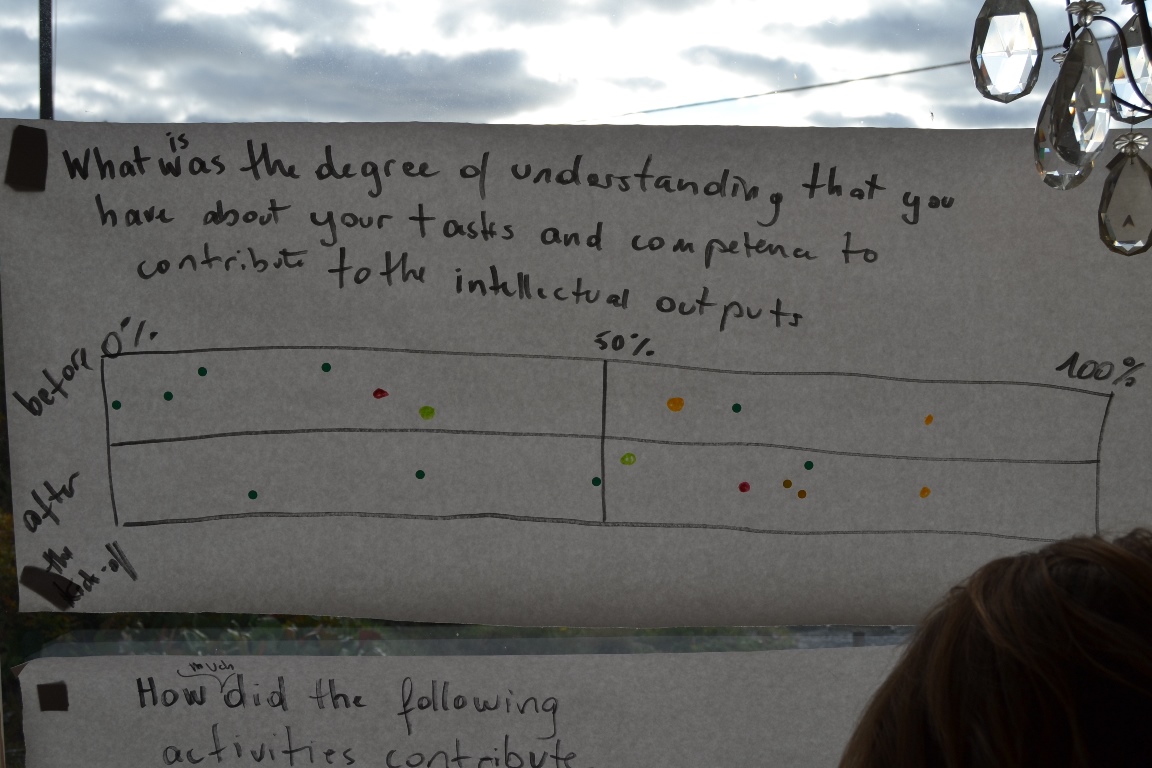 is
What was the degree of understanding that you
have about your tasks and competence to
contribute to the intellectual outputs
0%
50%
100%
before
after
the
kick-off
much
How did the following
activities contribute